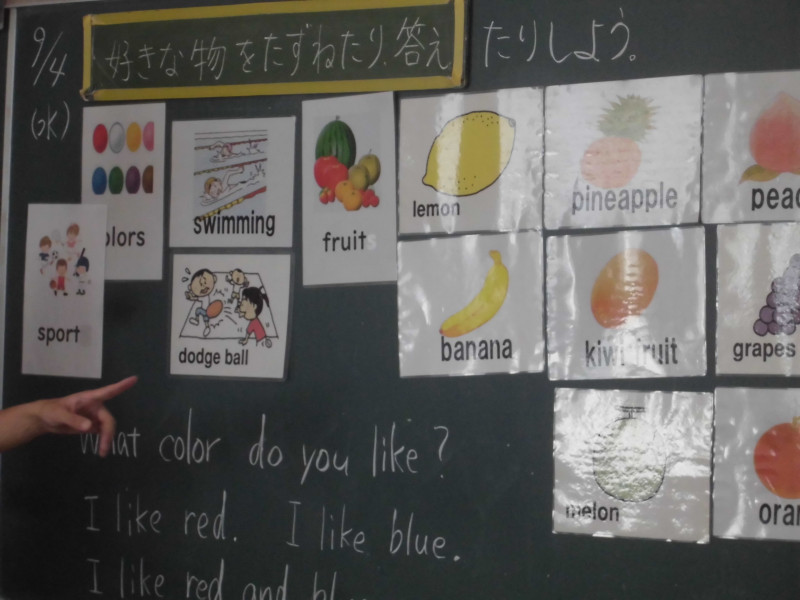 9/4
(水)
好きな物をたずねたり、答えたりしよう。
colors
swimming
fruits
lemon
pineapple
peach
sport
dodge ball
banana
kiwi fruit
grapes
melon
orange
What color do you like?
I like red. I like blue.
I like red and